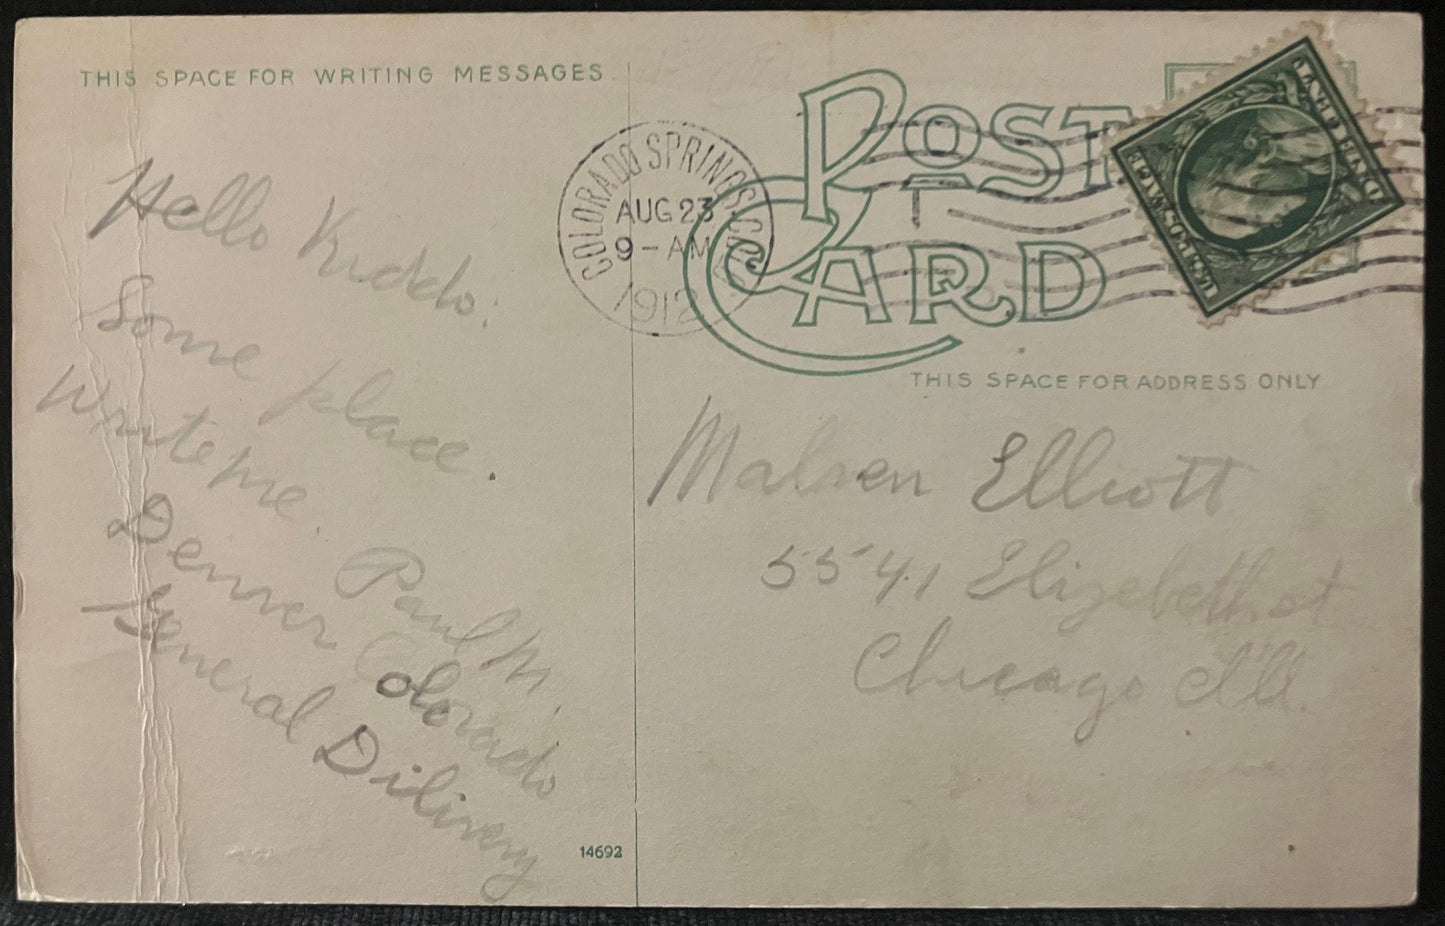 THIS SPACE FOR WRITING MESSAGES
Hello Kiddo.
Some place.
Write me.
Paul M.
Denver Colorado
General Dilivery
14692
COLORADO SPRINGS, COLO.
AUG 23
9-AM
1912
POST CARD
THIS SPACE FOR ADDRESS ONLY
Elliott
5541 Elizebeth st
Chicago Ill.
U.S. POSTAGE